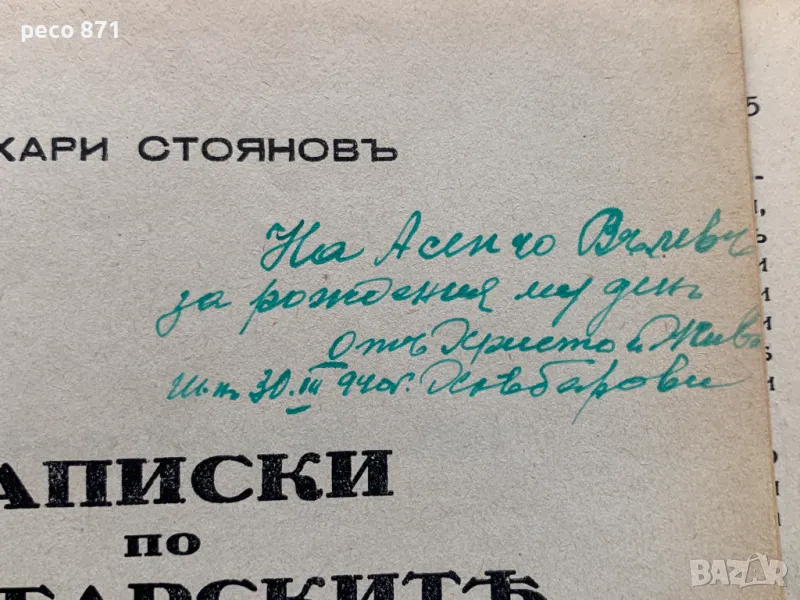 peco 871
ХАРИ СТОЯНОВЪ
На Асенчо Вълевъ
за рождения му день
отъ Христо и Жив
30. III 940г. Хлѣбарови
АПИСКИ
ПО
ГАРСКИТѢ
5
BAZAR